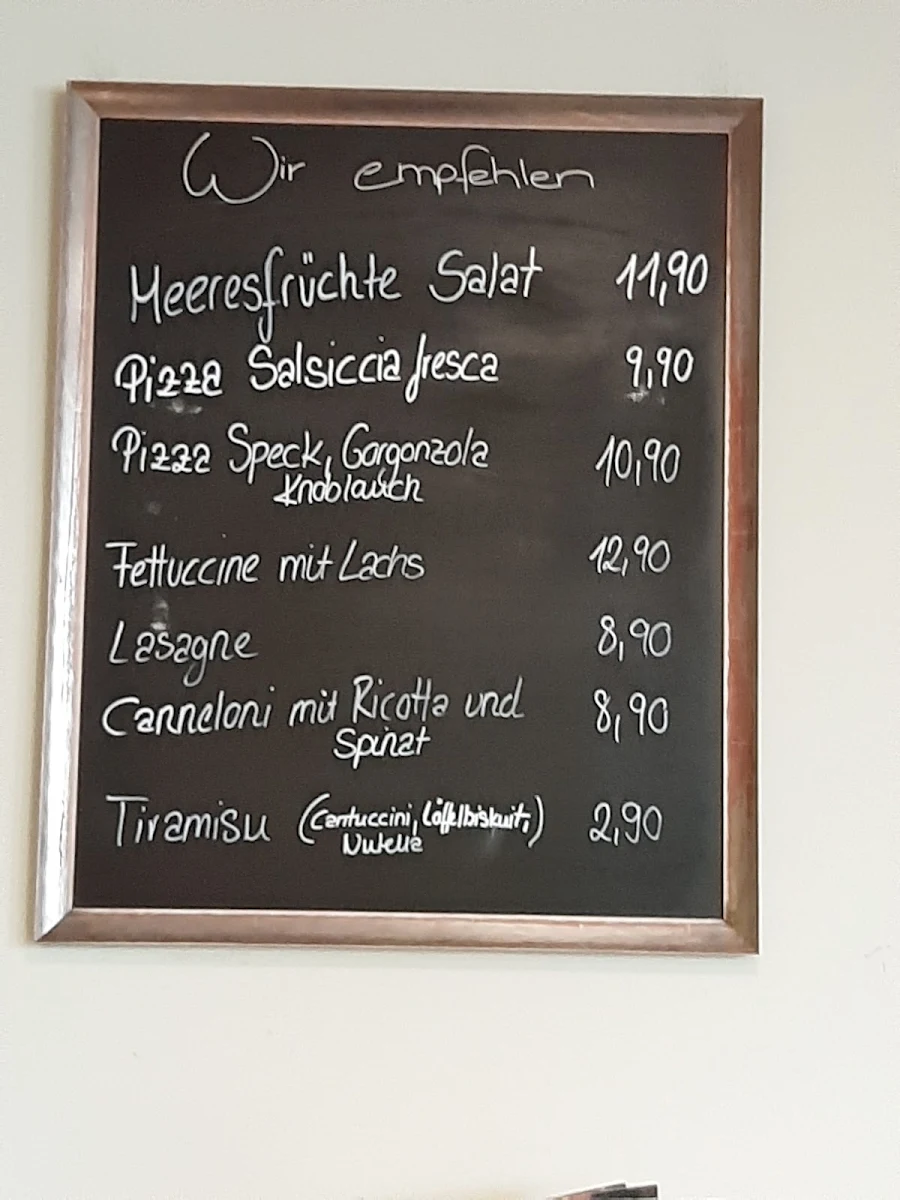 Wir empfehlen
Meeresfrüchte Salat 11,90
Pizza Salsiccia fresca 9,90
Pizza Speck, Gorgonzola 10,90
Knoblauch
Fettuccine mit Lachs 12,90
Lasagne 8,90
Canneloni mit Ricotta und 8,90
Spinat
Tiramisu (Cantuccini, Löffelbiskuit,) 2,90
Nutella